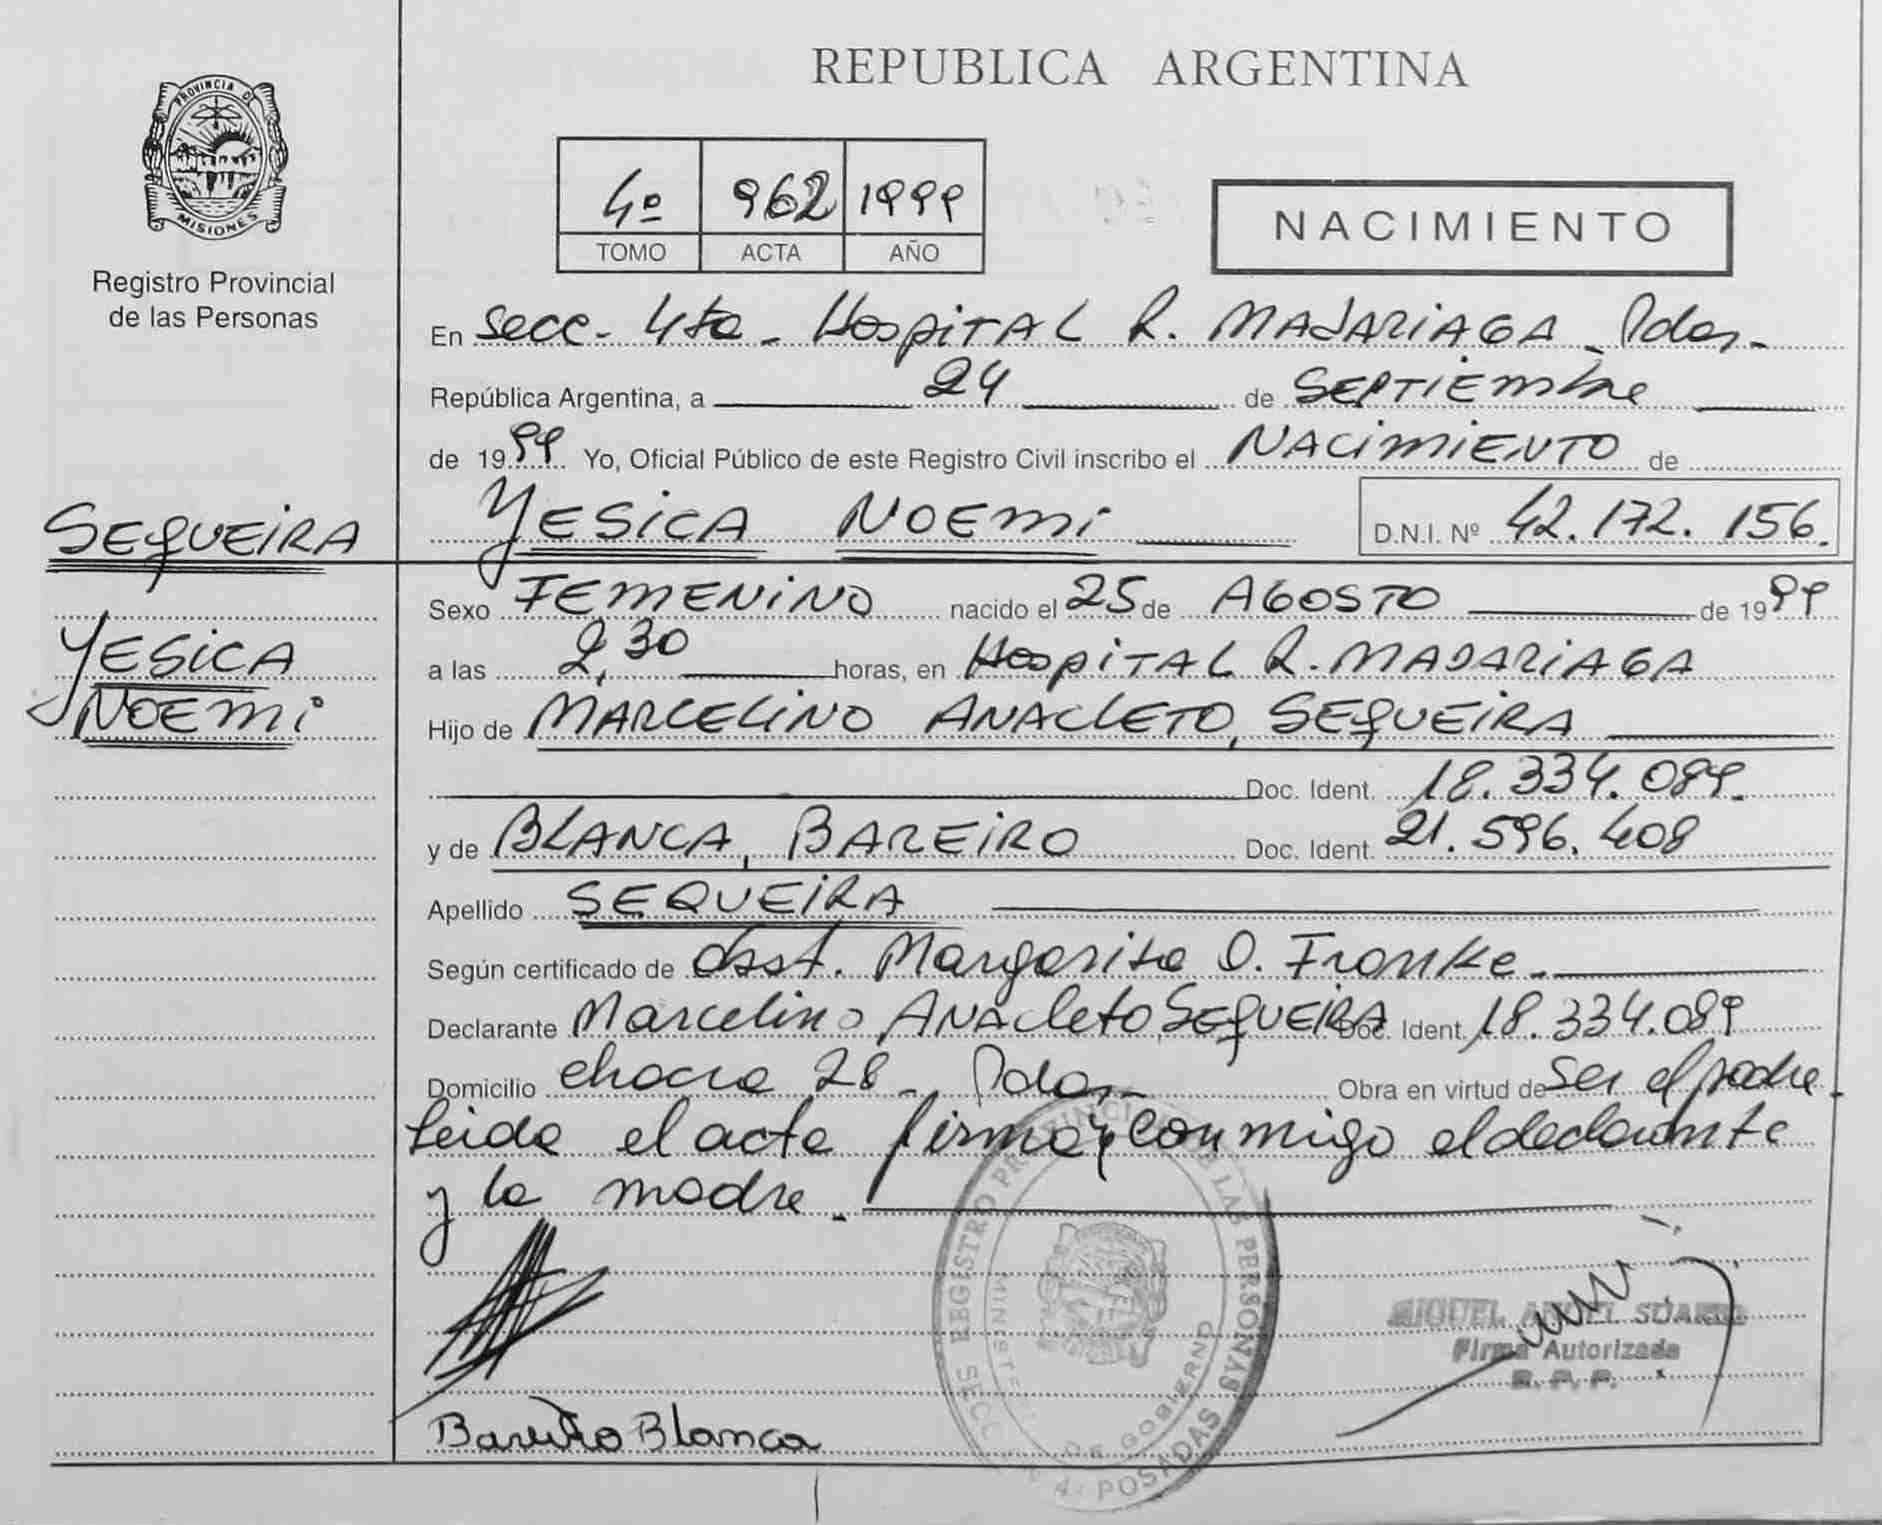 PROVINCIA D
MISIONES
Registro Provincial
de las Personas
REPUBLICA ARGENTINA
4º 962 1999
TOMO ACTA AÑO
NACIMIENTO
En Secc. 4ta. Hospital R. MADARIAGA Pdas.
República Argentina, a 24 de SEPTIEMbre
de 1999 Yo, Oficial Público de este Registro Civil inscribo el NACIMIENTO de
SEQUEIRA
YESICA NOEMI D.N.I. Nº 42.172.156.
Sexo FEMENINO nacido el 25 de AGOSTO de 1999
YESICA
NOEMI
a las 2,30 horas, en Hospital R. MADARIAGA
Hijo de MARCELINO ANACLETO, SEQUEIRA
Doc. Ident. 18.334.089.
y de BLANCA, BAREIRO Doc. Ident. 21.596.408
Apellido SEQUEIRA
Según certificado de Obst. Margarita O. Franke.
Declarante Marcelino ANACleto SEQUEIRA Doc. Ident. 18.334.089
Domicilio chacra 28 - Pdas. Obra en virtud de Ser el padre.
Leida el acta firman conmigo el declarante
y la madre.
SECC REGISTRO PROVINCIAL DE LAS PERSONAS
DE GOBIERNO
4 - POSADAS
MIGUEL ANGEL SUAREZ
Firma Autorizada
R. P. P.
Bareiro Blanca